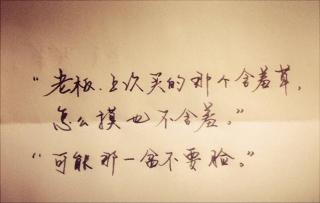 “老板、上次买的那个含羞草,
怎么摸也不含羞。”
“可能那一盆不要脸。”